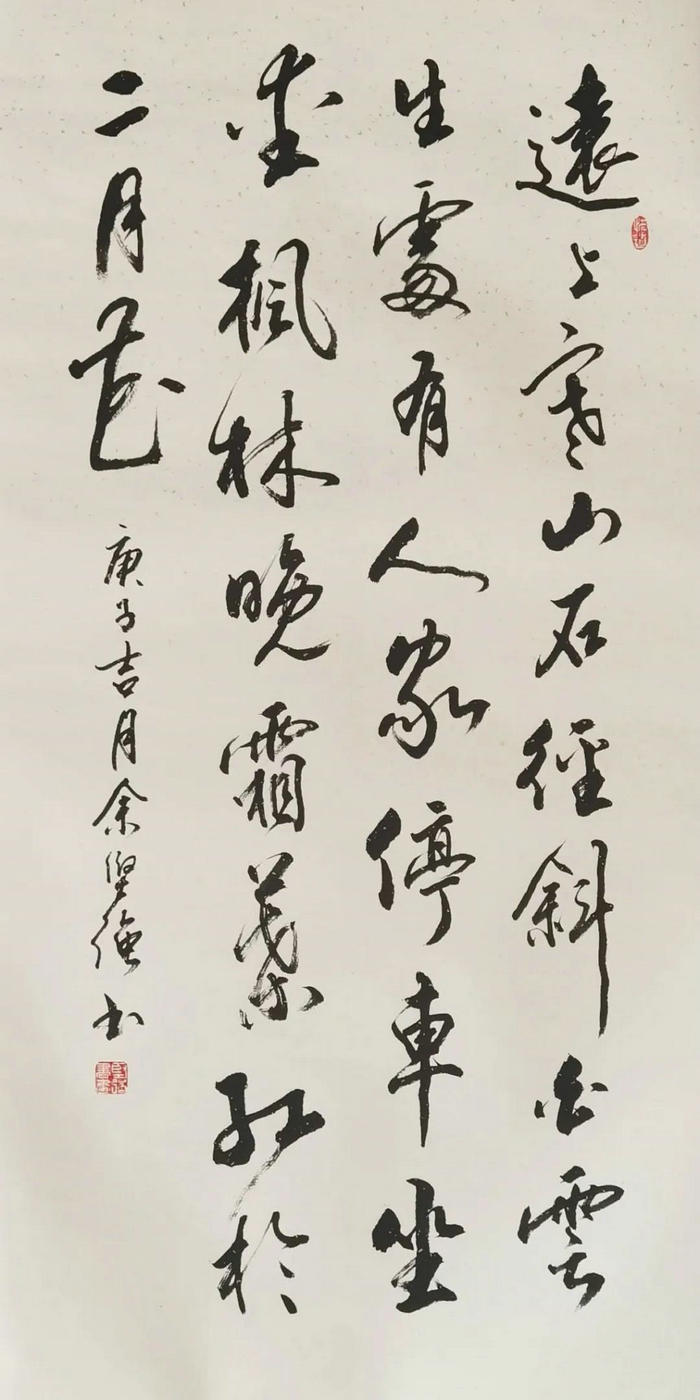 遠上寒山石徑斜白雲
生處有人家停車坐
愛楓林晚霜葉紅於
二月花
庚子吉月余堅強书